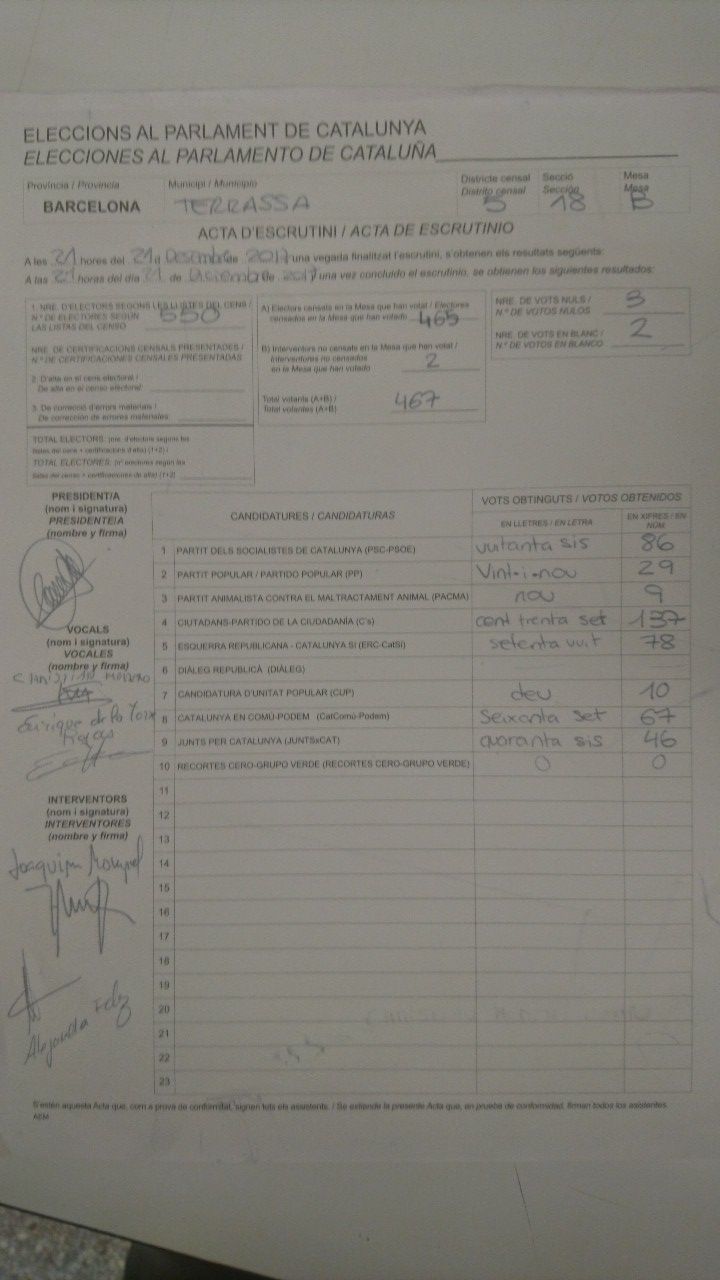 ELECCIONS AL PARLAMENT DE CATALUNYA
ELECCIONES AL PARLAMENTO DE CATALUÑA
Província / Provincia Municipi / Municipio Districte censal Secció Mesa
Distrito censal Sección Mesa
BARCELONA TERRASSA 5 18 B
ACTA D'ESCRUTINI / ACTA DE ESCRUTINIO
A les 21 hores del 21 d Desembre de 2017 una vegada finalitzat l'escrutini, s'obtenen els resultats següents:
A las 21 horas del día 21 de Diciembre de 2017 una vez concluido el escrutinio, se obtienen los siguientes resultados:
1. NRE. D'ELECTORS SEGONS LES LLISTES DEL CENS /
N.º DE ELECTORES SEGÚN 550
LAS LISTAS DEL CENSO
NRE. DE CERTIFICACIONS CENSALS PRESENTADES /
N.º DE CERTIFICACIONES CENSALES PRESENTADAS
2. D'alta en el cens electoral /
De alta en el censo electoral:
3. De correcció d'errors materials /
De corrección de errores materiales:
TOTAL ELECTORS: (nre. d'electors segons les
llistes del cens + certificacions d'alta) (1+2) /
TOTAL ELECTORES: (nº electores según las
listas del censo + certificaciones de alta) (1+2)
A) Electors censats en la Mesa que han votat / Electores
censados en la Mesa que han votado 465
B) Interventors no censats en la Mesa que han votat /
Interventores no censados
en la Mesa que han votado 2
Total votants (A+B) /
Total votantes (A+B) 467
NRE. DE VOTS NULS /
N.º DE VOTOS NULOS 3
NRE. DE VOTS EN BLANC /
N.º DE VOTOS EN BLANCO 2
PRESIDENT/A
(nom i signatura)
PRESIDENTE/A
(nombre y firma)
VOCALS
(nom i signatura)
VOCALES
(nombre y firma)
Enrique de la Torre
INTERVENTORS
(nom i signatura)
INTERVENTORES
(nombre y firma)
Joaquim
Alejandra
CANDIDATURES / CANDIDATURAS VOTS OBTINGUTS / VOTOS OBTENIDOS
EN LLETRES / EN LETRA EN XIFRES / EN NÚM.
1 PARTIT DELS SOCIALISTES DE CATALUNYA (PSC-PSOE) vuitanta sis 86
2 PARTIT POPULAR / PARTIDO POPULAR (PP) Vint-i-nou 29
3 PARTIT ANIMALISTA CONTRA EL MALTRACTAMENT ANIMAL (PACMA) nou 9
4 CIUTADANS-PARTIDO DE LA CIUDADANÍA (C's) cent trenta set 137
5 ESQUERRA REPUBLICANA - CATALUNYA SÍ (ERC-CatSí) setenta vuit 78
6 DIÀLEG REPUBLICÀ (DIÀLEG)
7 CANDIDATURA D'UNITAT POPULAR (CUP) deu 10
8 CATALUNYA EN COMÚ-PODEM (CatComú-Podem) Seixanta set 67
9 JUNTS PER CATALUNYA (JUNTSxCAT) quoranta sis 46
10 RECORTES CERO-GRUPO VERDE (RECORTES CERO-GRUPO VERDE) 0 0
11
12
13
14
15
16
17
18
19
20
21
22
23
S'estén aquesta Acta que, com a prova de conformitat, signen tots els assistents. / Se extiende la presente Acta que, en prueba de conformidad, firman todos los asistentes.